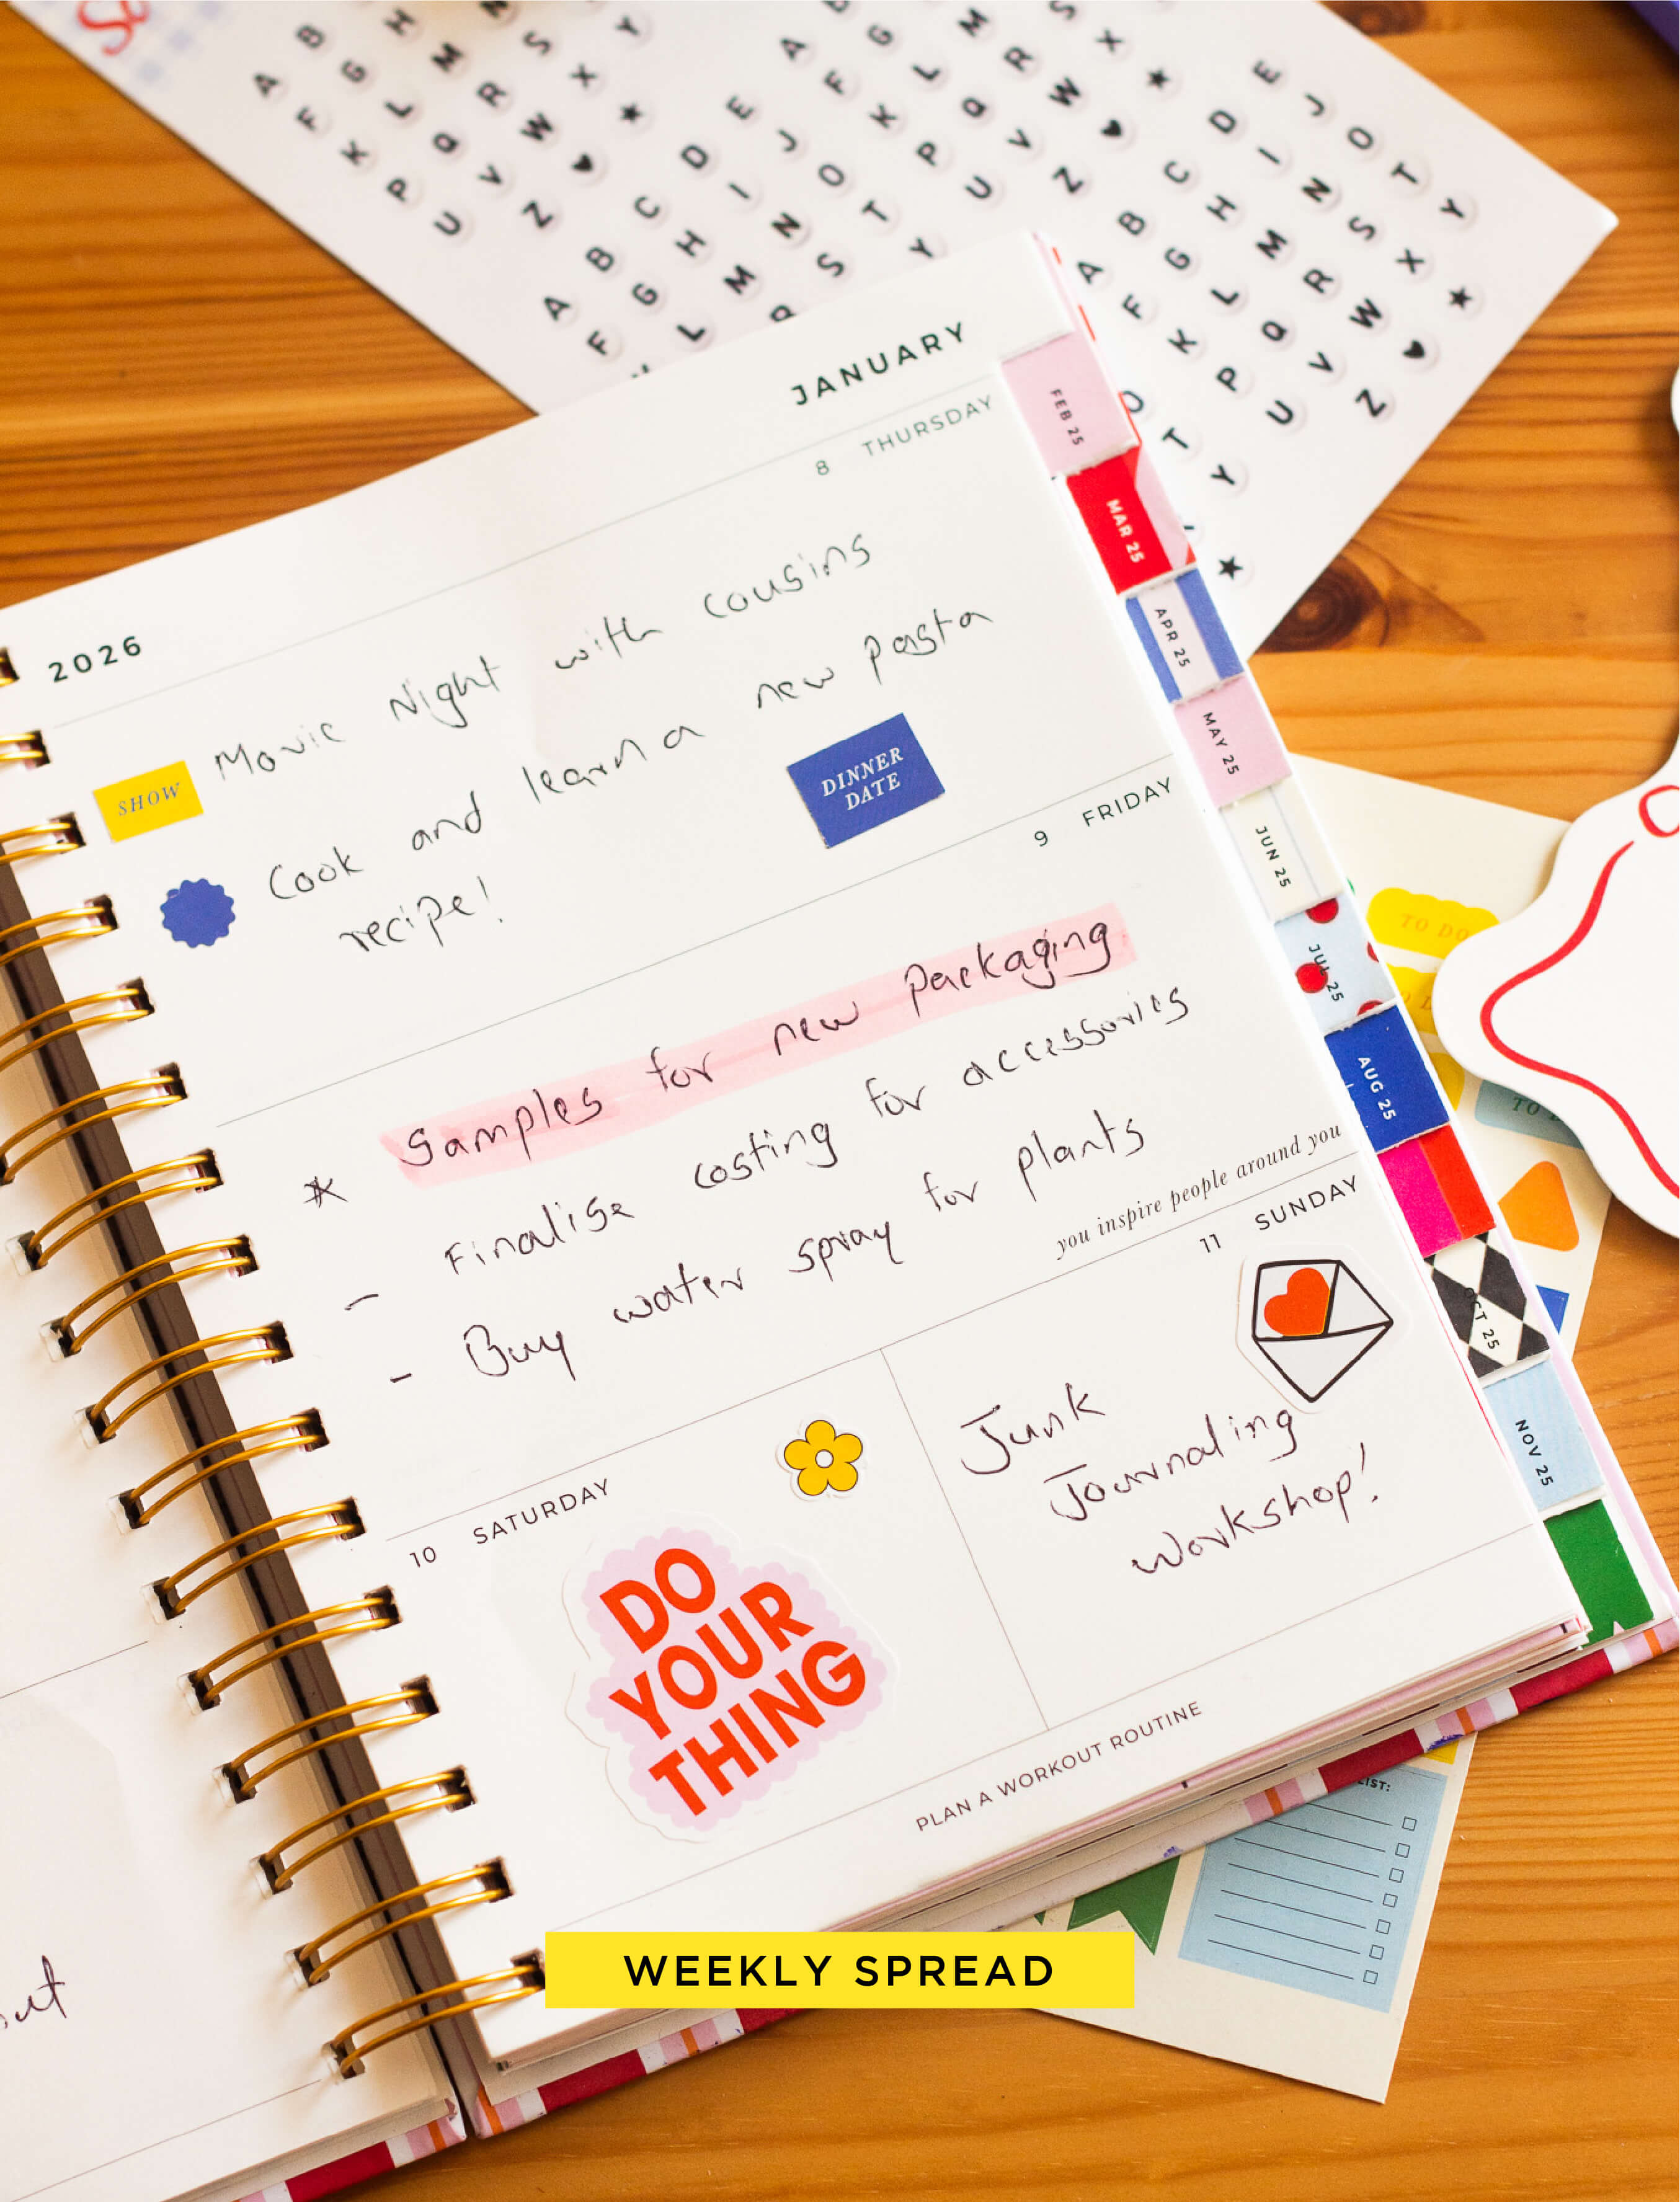 A B
F G H
K L M N
P Q R S
U V W X Y
Z ♥ ★
A B C D E
F G H I J
L M N O
Q S T
Y
A B
F G
K L M
P Q R S
U V W X
Z ♥ ★
A B C D E
F G H I J
K L M N O
P Q R S T
U V W X Y
Z ♥ ★
O
T
Y
★
2026
JANUARY
8 THURSDAY
SHOW
Movie Night with cousins
Cook and learn a new pasta
recipe!
DINNER
DATE
9 FRIDAY
* Samples for new packaging
- Finalise costing for accessories
- Buy water spray for plants
you inspire people around you
10 SATURDAY
DO
YOUR
THING
11 SUNDAY
Junk
Journaling
Workshop!
PLAN A WORKOUT ROUTINE
FEB 25
MAR 25
APR 25
MAY 25
JUN 25
JUL 25
AUG 25
OCT 25
NOV 25
TO DO
TO
IST:
WEEKLY SPREAD